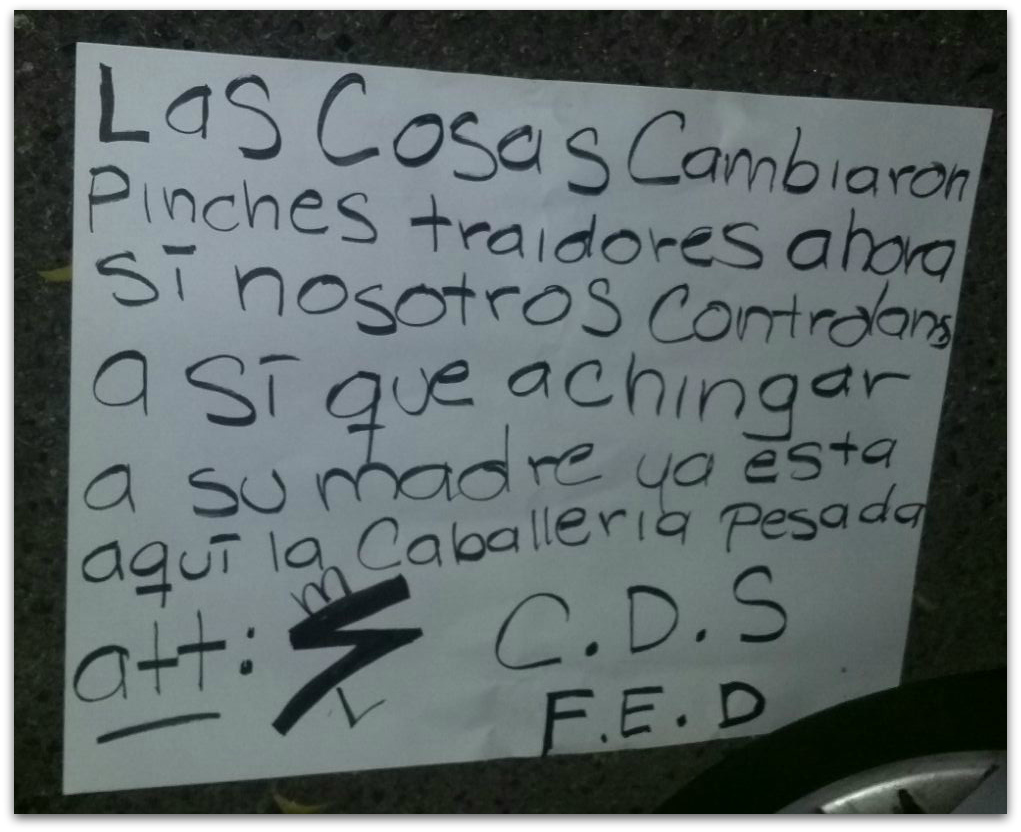 Las Cosas Cambiaron
Pinches traidores ahora
sī nosotros Controlams
a sī que achingar
a su madre ya esta
aquī la Caballeria Pesada
att: M Z L C.D.S
F.E.D